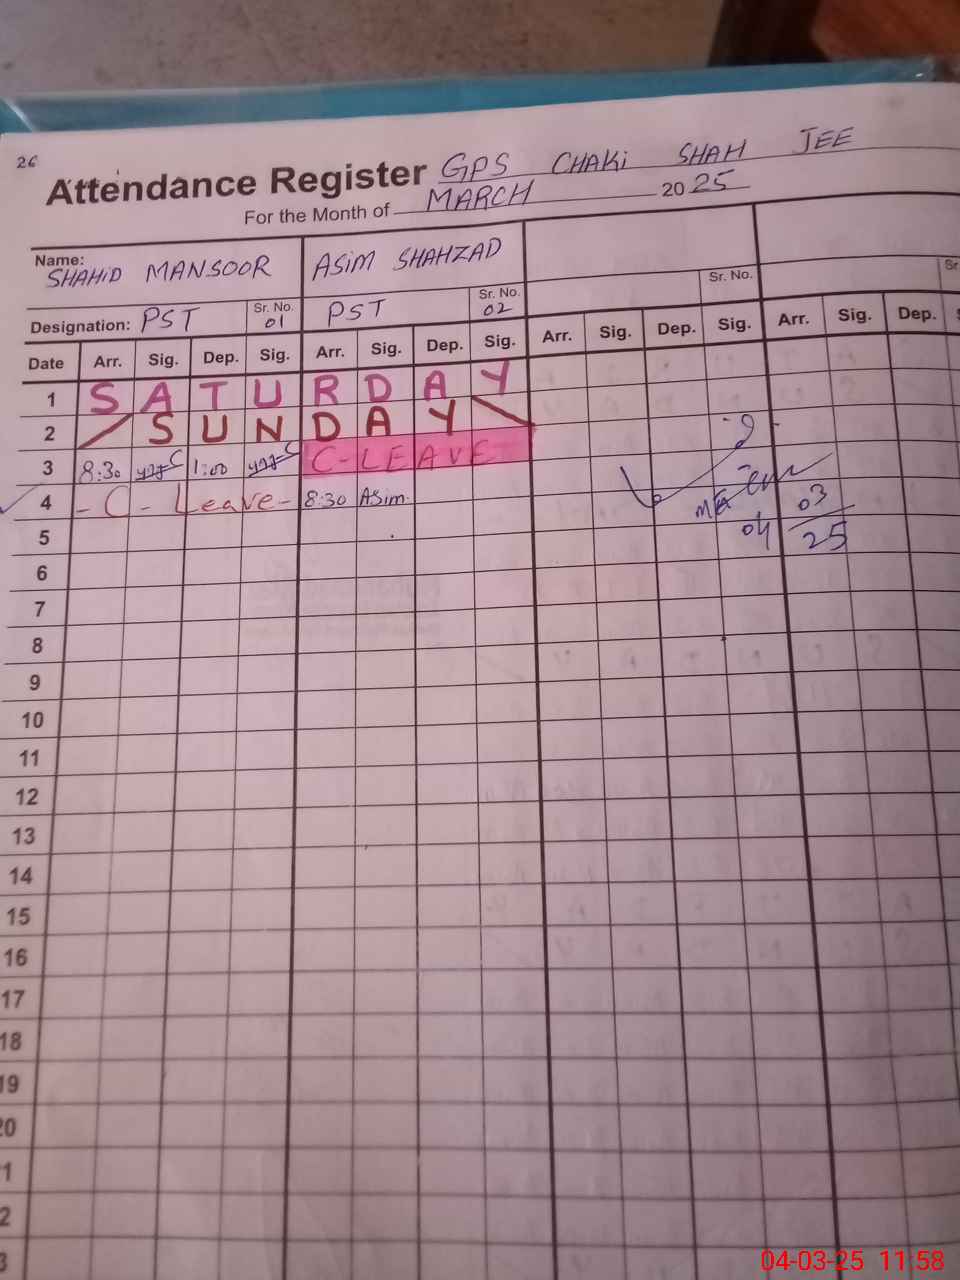 26
Attendance Register GPS CHAKI SHAH JEE
For the Month of MARCH 2025
Name: SHAHID MANSOOR ASIM SHAHZAD
Sr. No. Sr. No. Sr. No. Sr
Designation: PST 01 PST 02
Date Arr. Sig. Dep. Sig. Arr. Sig. Dep. Sig. Arr. Sig. Dep. Sig. Arr. Sig. Dep.
1 SATURDAY
2 SUNDAY
3 8:30 1:00 C-LEAVE
4 - C - Leave - 8:30 Asim
04 03
25
5
6
7
8
9
10
11
12
13
14
15
16
17
18
19
20
1
2
3
04-03-25 11:58